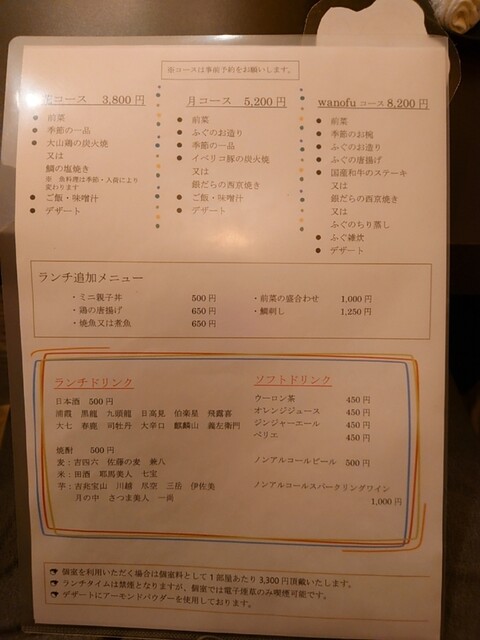 ※コースは事前予約をお願いします。
コース 3,800円
● 前菜
● 季節の一品
● 大山鶏の炭火焼
又は
鯛の塩焼き
※ 魚料理は季節・入荷により
変わります
● ご飯・味噌汁
● デザート
月コース 5,200円
● 前菜
● ふぐのお造り
● 季節の一品
● イベリコ豚の炭火焼
又は
銀だらの西京焼き
● ご飯・味噌汁
● デザート
wanofu コース 8,200円
● 前菜
● 季節のお椀
● ふぐのお造り
● ふぐの唐揚げ
● 国産和牛のステーキ
又は
銀だらの西京焼き
又は
ふぐのちり蒸し
● ふぐ雑炊
● デザート
ランチ追加メニュー
・ミニ親子丼 500円
・鶏の唐揚げ 650円
・焼魚又は煮魚 650円
・前菜の盛合わせ 1,000円
・鯛刺し 1,250円
ランチドリンク
日本酒 500円
浦霞 黒龍 九頭龍 日高見 伯楽星 飛露喜
大七 春鹿 司牡丹 大辛口 麒麟山 義左衛門
焼酎 500円
麦：吉四六 佐藤の麦 兼八
米：田酒 耶馬美人 七宝
芋：吉兆宝山 川越 尽空 三岳 伊佐美
月の中 さつま美人 一尚
ソフトドリンク
ウーロン茶 450円
オレンジジュース 450円
ジンジャーエール 450円
ペリエ 450円
ノンアルコールビール 500円
ノンアルコールスパークリングワイン
1,000円
☞ 個室を利用いただく場合は個室料として1部屋あたり3,300円頂戴いたします。
☞ ランチタイムは禁煙となりますが、個室では電子煙草のみ喫煙可能です。
☞ デザートにアーモンドパウダーを使用しております。